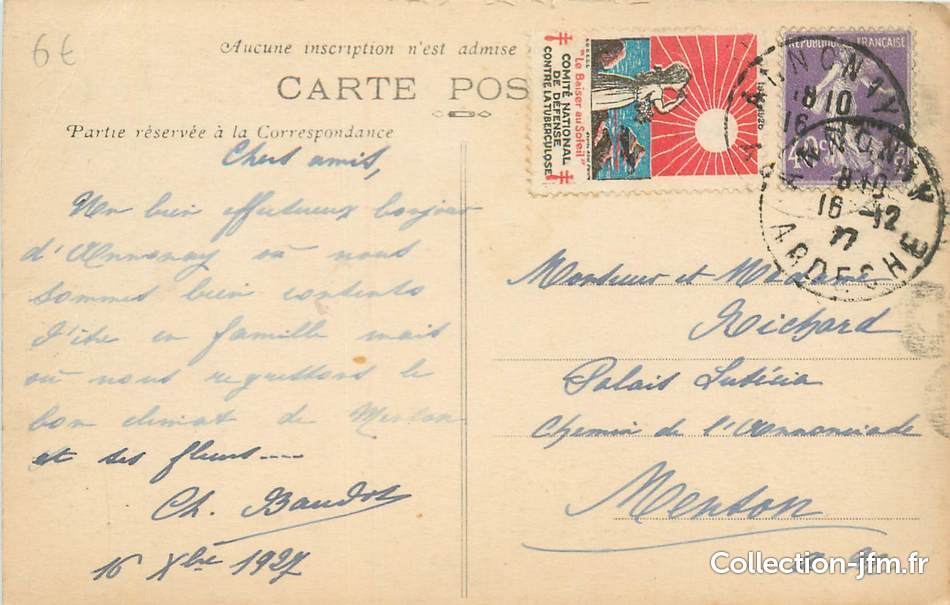 6€
Aucune inscription n'est admise
CARTE POS
Partie réservée à la Correspondance
Chers amis,
Un bien affectueux bonjour
d'Annonay où nous
sommes bien contents
d'être en famille mais
où nous regrettons le
bon climat de Menton
et ses fleurs....
Ch. Baudot
16 Xbre 1927
"Le Baiser au Soleil"
COMITÉ NATIONAL
DE DÉFENSE
CONTRE LA TUBERCULOSE
REPUBLIQUE FRANÇAISE
ANNONAY
18 10
16
ANNONAY
8 10
16 -12
27
ARDECHE
Monsieur et Madame
Richard
Palais Lutécia
Chemin de l'Annonciade
Menton
Collection-jfm.fr